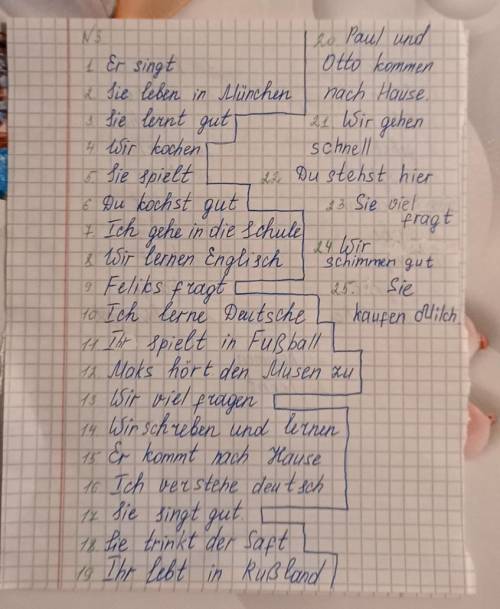 №3
1 Er singt
2 Sie leben in München
3 Sie lernt gut
4 Wir kochen
5 Sie spielt
6 Du kochst gut
7 Ich gehe in die Schule
8 Wir lernen Englisch
9 Feliks fragt
10 Ich lerne Deutsche
11 Ihr spielt in Fußball
12 Maks hört den Musen zu
13 Wir viel fragen
14 Wir schreben und lernen
15 Er kommt nach Hause
16 Ich verstehe deutsch
17 Sie singt gut
18 Sie trinkt der Saft
19 Ihr lebt in Rußland
20 Paul und
Otto kommen
nach Hause.
21. Wir gehen
schnell
22. Du stehst hier
23 Sie viel
fragt
24 Wir
schimmen gut
25. Sie
kaufen Milch